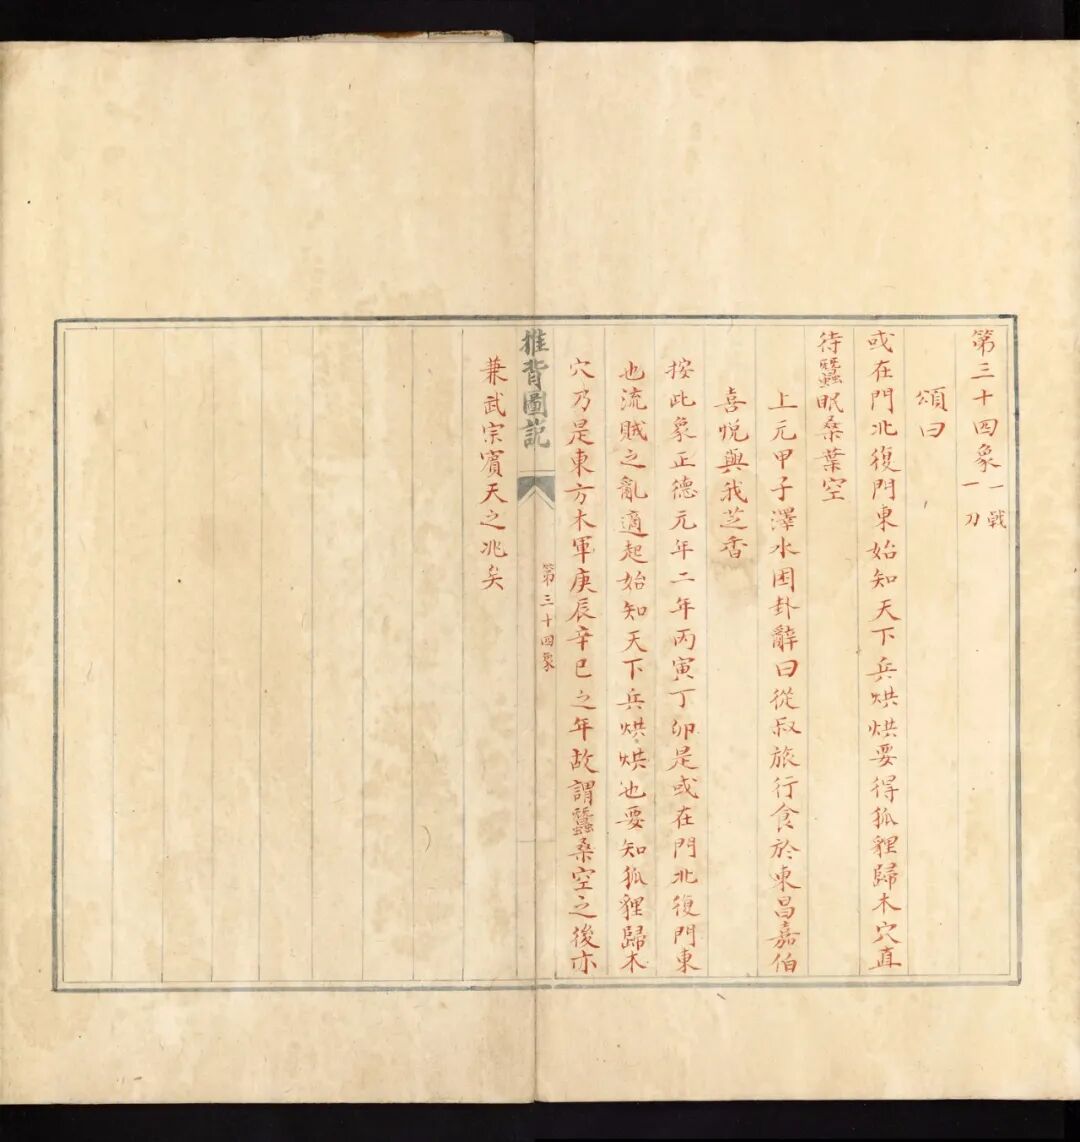 第三十四象一戟
一刀
頌曰
或在門北復門東始知天下兵烘烘要得狐貍歸木穴直
待蠶眠桑葉空
上元甲子澤水困卦辭曰從叔旅行食於東昌嘉伯
喜悅與我芝香
按此象正德元年二年丙寅丁卯是或在門北復門東
也流賊之亂適起始知天下兵烘烘也要知狐貍歸木
穴乃是東方木軍庚辰辛巳之年故謂蠶桑空之後亦
推背圖説
第三十四象
兼武宗賓天之兆矣